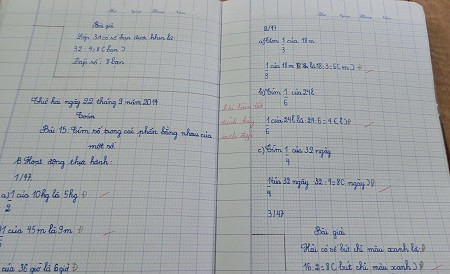 Bài giải
Lớp 3A có số bạn được khen là
32 : 4 = 8 ( bạn )
Đáp số : 8 bạn
Thứ hai ngày 22 tháng 9 năm 2014
Toán
Bài 15: Tìm số trong các phần bằng nhau của
một số
B. Hoạt động thực hành:
1/47
a) 1/2 của 10kg là 5kg Đ
1/5 của 45m là 9m Đ
của 36 giờ là 6 giờ Đ
2/47
a) Tìm 1/3 của 18m
1/3 của 18m là 18:3=6( m ) Đ
b) Tìm 1/6 của 24l
1/6 của 24l là: 24:6=4( l ) Đ
c) Tìm 1/4 của 32 ngày
1/4 của 32 ngày 32:4=8( ngày ) Đ
3/47
Bài giải
Hải có số bút chì màu xanh là: Đ
16:2=8( bút chì màu ) Đ